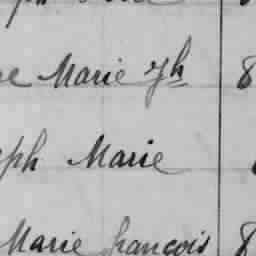 Marie Jh 8
Marie
Marie francois 8